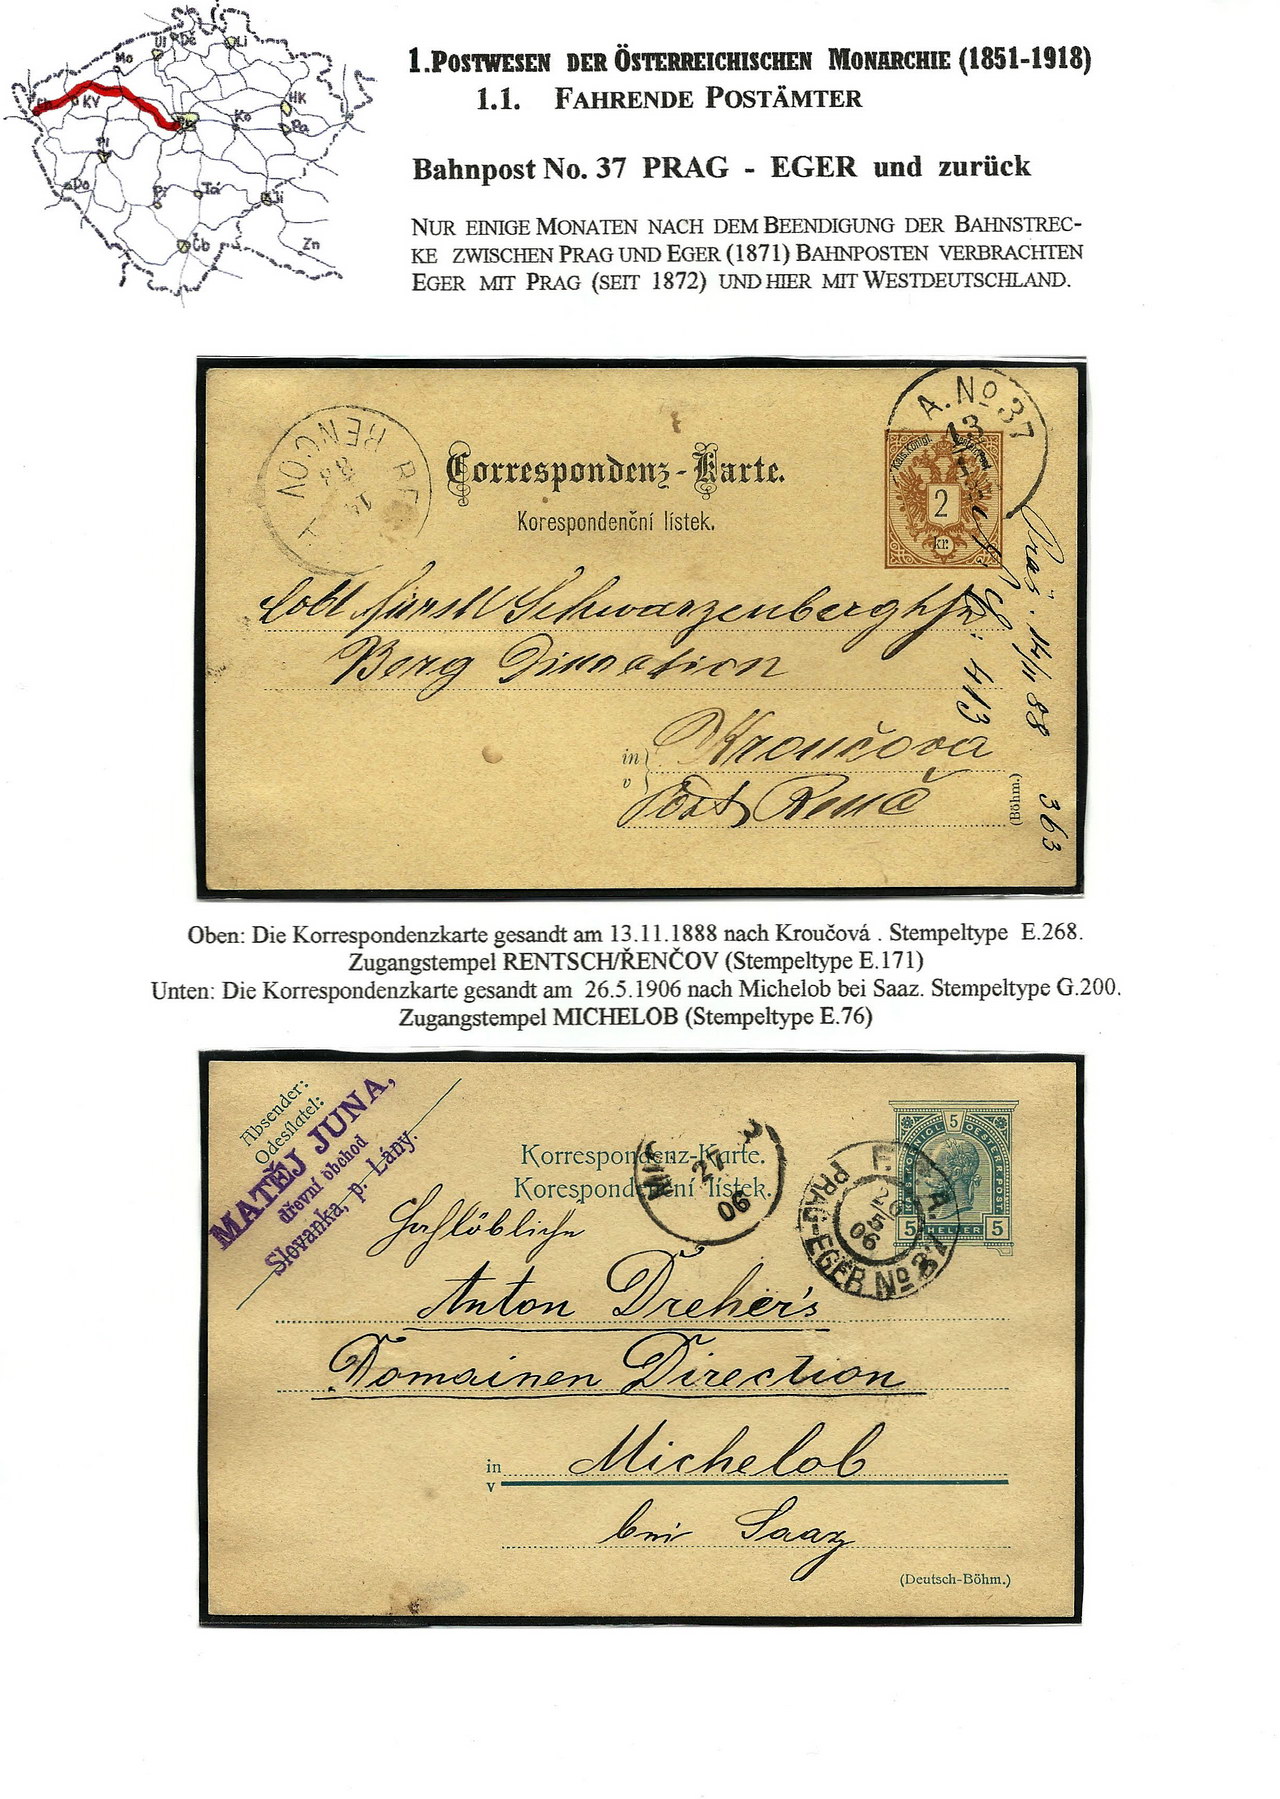 Ul
Dě
Li
Mo
Ch
KV
HK
Pr
Ko
Pa
Pl
Do
Př
Tá
Ji
Čb
Zn
1.Postwesen der Österreichischen Monarchie (1851-1918)
1.1. Fahrende Postämter
Bahnpost No. 37 PRAG - EGER und zurück
Nur einige Monaten nach dem Beendigung der Bahnstrec-
ke zwischen Prag und Eger (1871) Bahnposten verbrachten
Eger mit Prag (seit 1872) und hier mit Westdeutschland.
RENČOV
14
88
A. No 37
13
Kais. Königl.
2
kr.
Correspondenz-Karte.
Korespondenční lístek.
Löbl Fürstl Schwarzenberg'sche
Berg Direction
in
v
Kroučova
Post Renč
(Böhm.)
413
14/11 88
363
Oben: Die Korrespondenzkarte gesandt am 13.11.1888 nach Kroučová . Stempeltype E.268.
Zugangstempel RENTSCH/ŘENČOV (Stempeltype E.171)
Unten: Die Korrespondenzkarte gesandt am 26.5.1906 nach Michelob bei Saaz. Stempeltype G.200.
Zugangstempel MICHELOB (Stempeltype E.76)
Absender:
Odesílatel:
MATĚJ JUNA,
dřevní obchod
Slovanka, p. Lány.
Korrespondenz-Karte.
Korespondenční lístek.
MIC
27
06
5
KAIS. KÖNIGL. OESTERR. POST
5 HELLER 5
F. P. A.
26
5
06
PRAG-EGER No 37
Hochlöbliche
Anton Dreher's
Domainen Direction
in
v
Michelob
bei Saaz
(Deutsch-Böhm.)